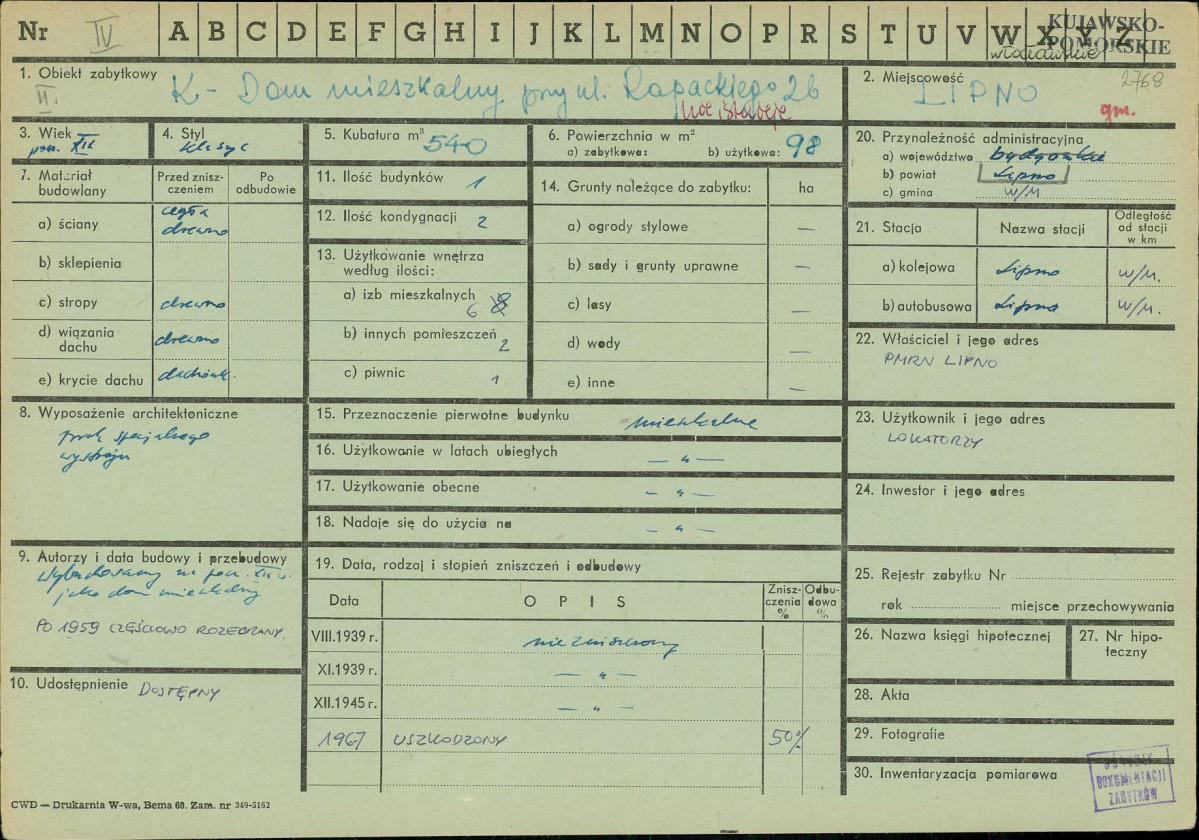 Nr IV A B C D E F G H I J K L M N O P R S T U V W X Y Z KUJAWSKO-POMORSKIE
włocławskie
1. Obiekt zabytkowy
II.
K - Dom mieszkalny przy ul. Rapackiego 26
nie istnieje
2. Miejscowość 2768
LIPNO
gm.
3. Wiek
pocz. XIX
4. Styl
klasyc
5. Kubatura m³ 540
6. Powierzchnia w m²
a) zabytkowa: b) użytkowa: 98
7. Materiał budowlany
Przed zniszczeniem
Po odbudowie
a) ściany cegła drewno
b) sklepienia
c) stropy drewno
d) wiązania dachu drewno
e) krycie dachu dachówk.
8. Wyposażenie architektoniczne
brak specjalnego
wystroju
9. Autorzy i data budowy i przebudowy
Wybudowany na pocz. XIX w.
jako dom mieszkalny
PO 1959 CZĘŚCIOWO ROZEBRANY.
10. Udostępnienie DOSTĘPNY
11. Ilość budynków 1
12. Ilość kondygnacji 2
13. Użytkowanie wnętrza według ilości:
a) izb mieszkalnych 6 8
b) innych pomieszczeń 2
c) piwnic 1
14. Grunty należące do zabytku: ha
a) ogrody stylowe —
b) sady i grunty uprawne —
c) lasy —
d) wody —
e) inne —
15. Przeznaczenie pierwotne budynku mieszkalne
16. Użytkowanie w latach ubiegłych — „ —
17. Użytkowanie obecne — „ —
18. Nadaje się do użycia na — „ —
19. Data, rodzaj i stopień zniszczeń i odbudowy
Data O P I S Zniszczenia % Odbudowa %
VIII.1939 r. nie zniszczony
XI.1939 r. — „ —
XII.1945 r. — „ —
1967 USZKODZONY 50%
20. Przynależność administracyjna
a) województwo bydgoskie
b) powiat Lipno
c) gmina w/m
21. Stacja Nazwa stacji Odległość od stacji w km
a) kolejowa Lipno w/m.
b) autobusowa Lipno w/m.
22. Właściciel i jego adres
PMRN LIPNO
23. Użytkownik i jego adres
LOKATORZY
24. Inwestor i jego adres
25. Rejestr zabytku Nr
rok miejsce przechowywania
26. Nazwa księgi hipotecznej
27. Nr hipoteczny
28. Akta
29. Fotografie
30. Inwentaryzacja pomiarowa
OŚRODEK
DOKUMENTACJI
ZABYTKÓW
CWD — Drukarnia W-wa, Bema 60. Zam. nr 349-5162